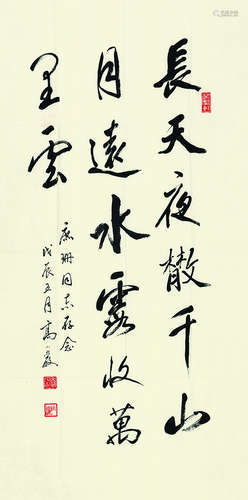 長天夜散千山
月遠水露收萬
里雲
庶珊同志存念
戊辰五月高夏